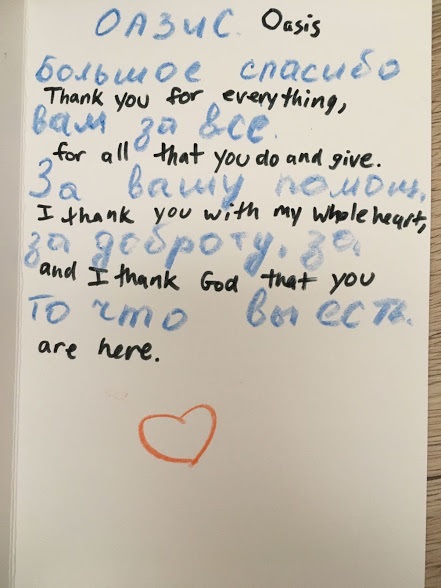 ОАЗИС. Oasis
большое спасибо
Thank you for everything,
вам за все.
for all that you do and give.
За вашу помощь,
I thank you with my whole heart,
за доброту, за
and I thank God that you
то что вы есть.
are here.